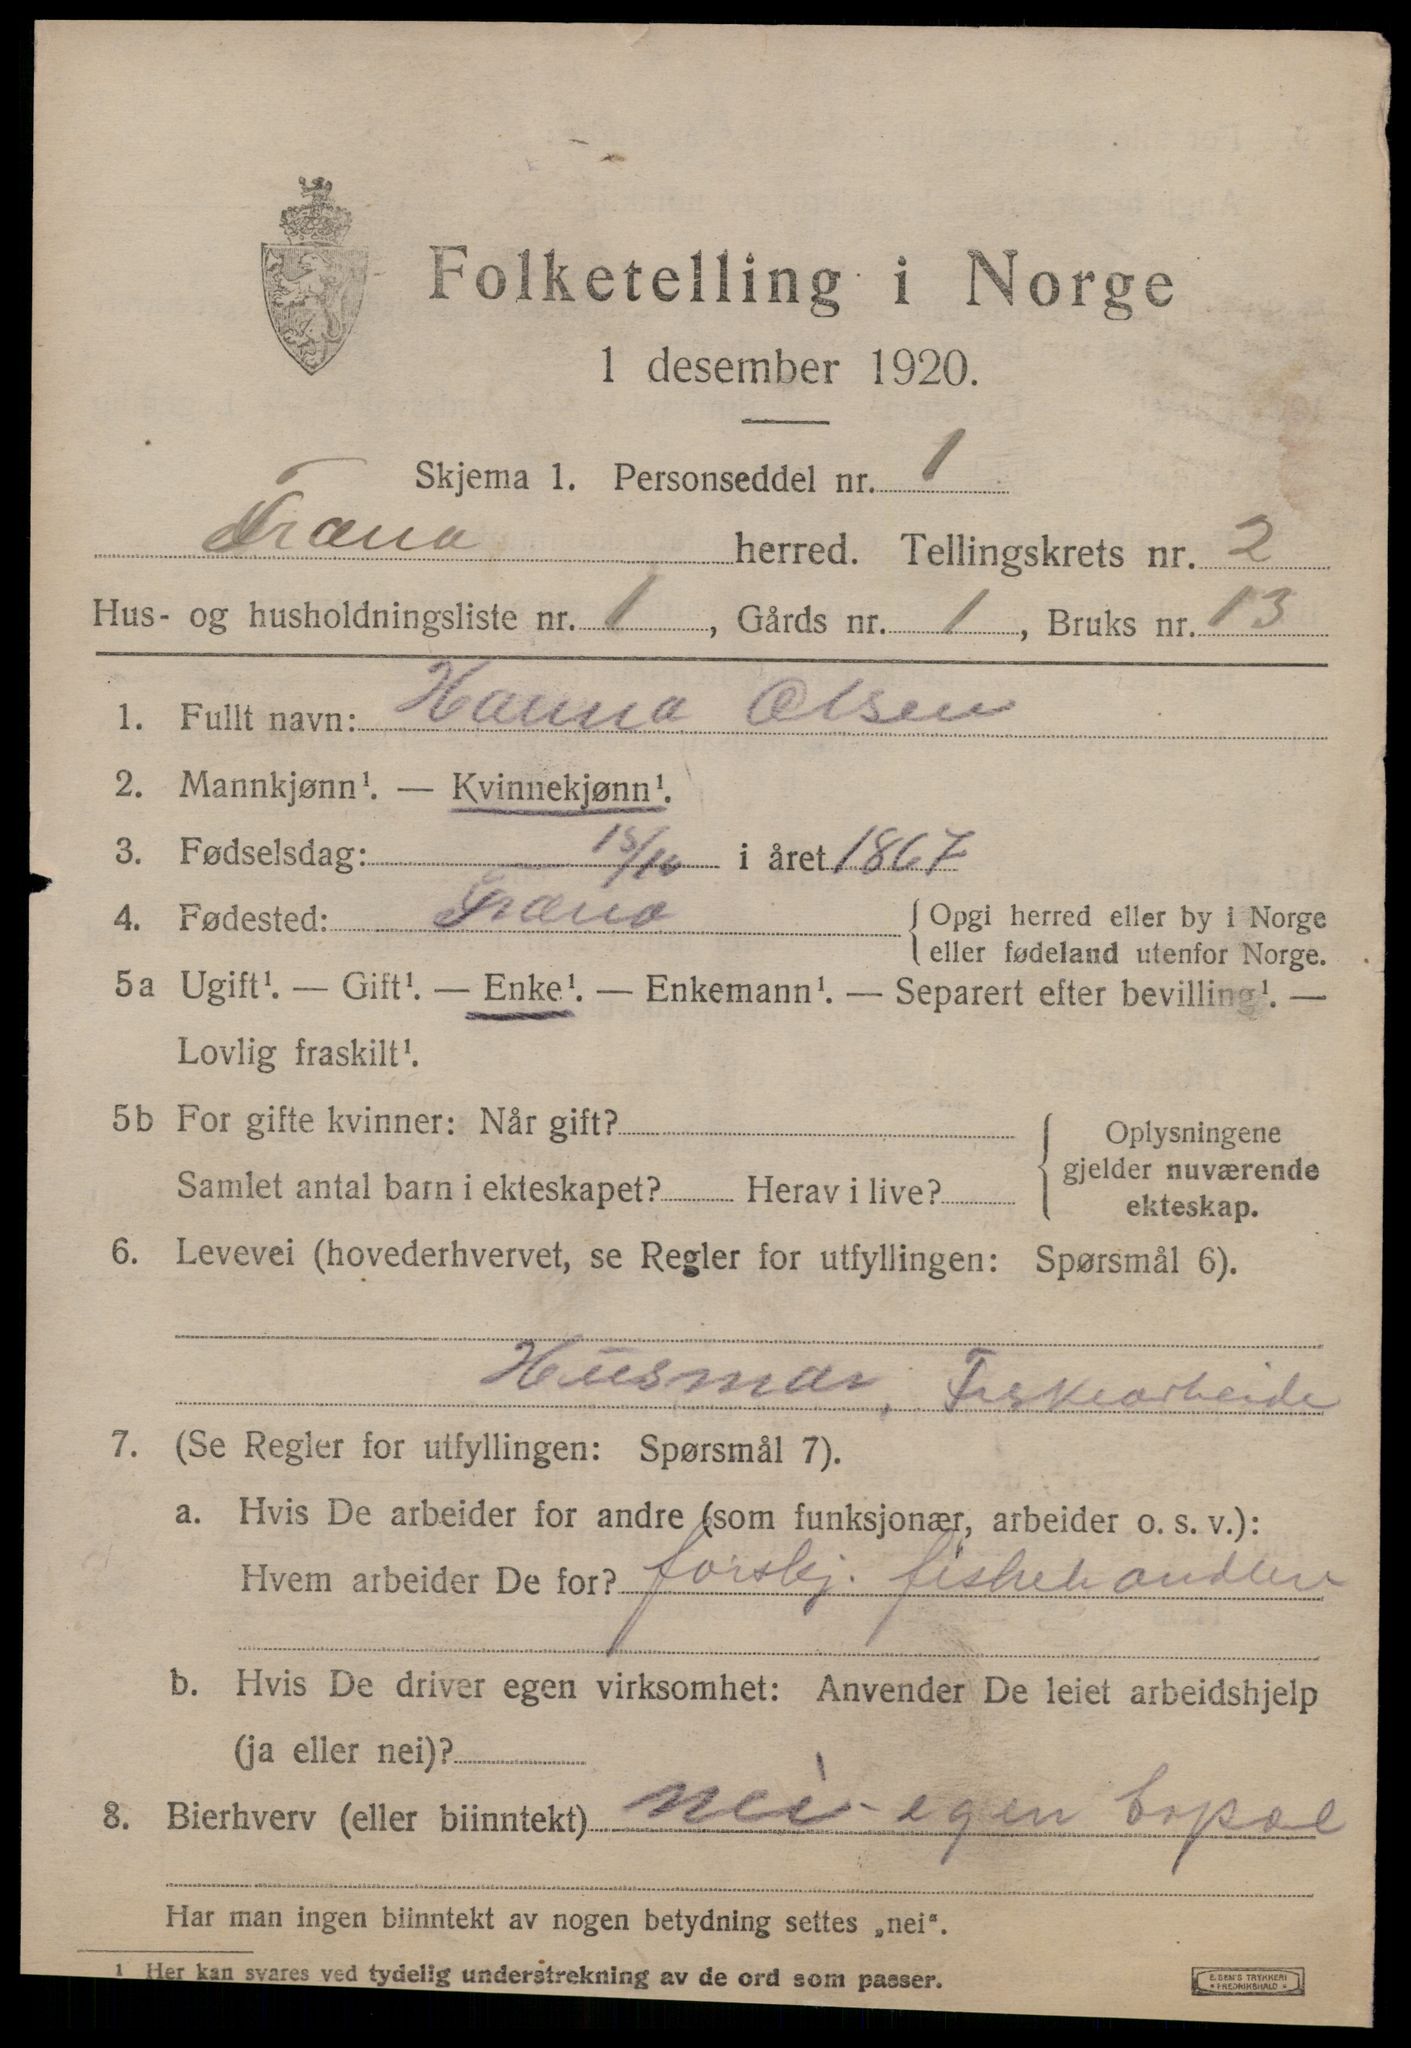 Folketelling i Norge
1 desember 1920.
Skjema 1. Personseddel nr. 1
Træna herred. Tellingskrets nr. 2
Hus- og husholdningsliste nr. 1, Gårds nr. 1, Bruks nr. 13
1. Fullt navn: Hanna Olsen
2. Mannkjønn¹. — Kvinnekjønn¹.
3. Fødselsdag: 15/10 i året 1867
4. Fødested: Træna { Opgi herred eller by i Norge
eller fødeland utenfor Norge.
5a Ugift¹. — Gift¹. — Enke¹. — Enkemann¹. — Separert efter bevilling¹. —
Lovlig fraskilt¹.
5b For gifte kvinner: Når gift? { Oplysningene
gjelder nuværende
ekteskap.
Samlet antal barn i ekteskapet? Herav i live?
6. Levevei (hovederhvervet, se Regler for utfyllingen: Spørsmål 6).
Husmor, Fiskearbeide
7. (Se Regler for utfyllingen: Spørsmål 7).
a. Hvis De arbeider for andre (som funksjonær, arbeider o. s. v.):
Hvem arbeider De for? forskj. fiskehandlere
b. Hvis De driver egen virksomhet: Anvender De leiet arbeidshjelp
(ja eller nei)?
8. Bierhverv (eller biinntekt) nei - egen
Har man ingen biinntekt av nogen betydning settes „nei“.
¹ Her kan svares ved tydelig understrekning av de ord som passer.
E. SEM'S TRYKKERI
* FREDRIKSHALD *